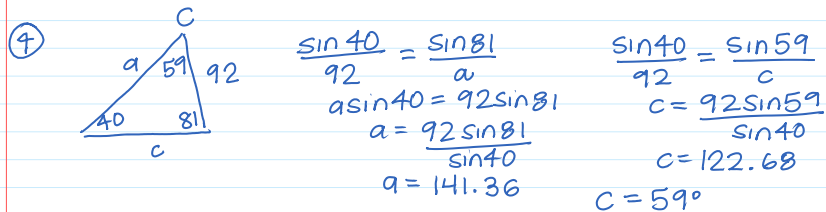 ④
C
a 59 92
40 81
c
sin 40/92 = sin 81/a
a sin 40 = 92 sin 81
a = 92 sin 81/sin 40
a = 141.36
sin 40/92 = sin 59/c
c = 92 sin 59/sin 40
c = 122.68
C = 59°